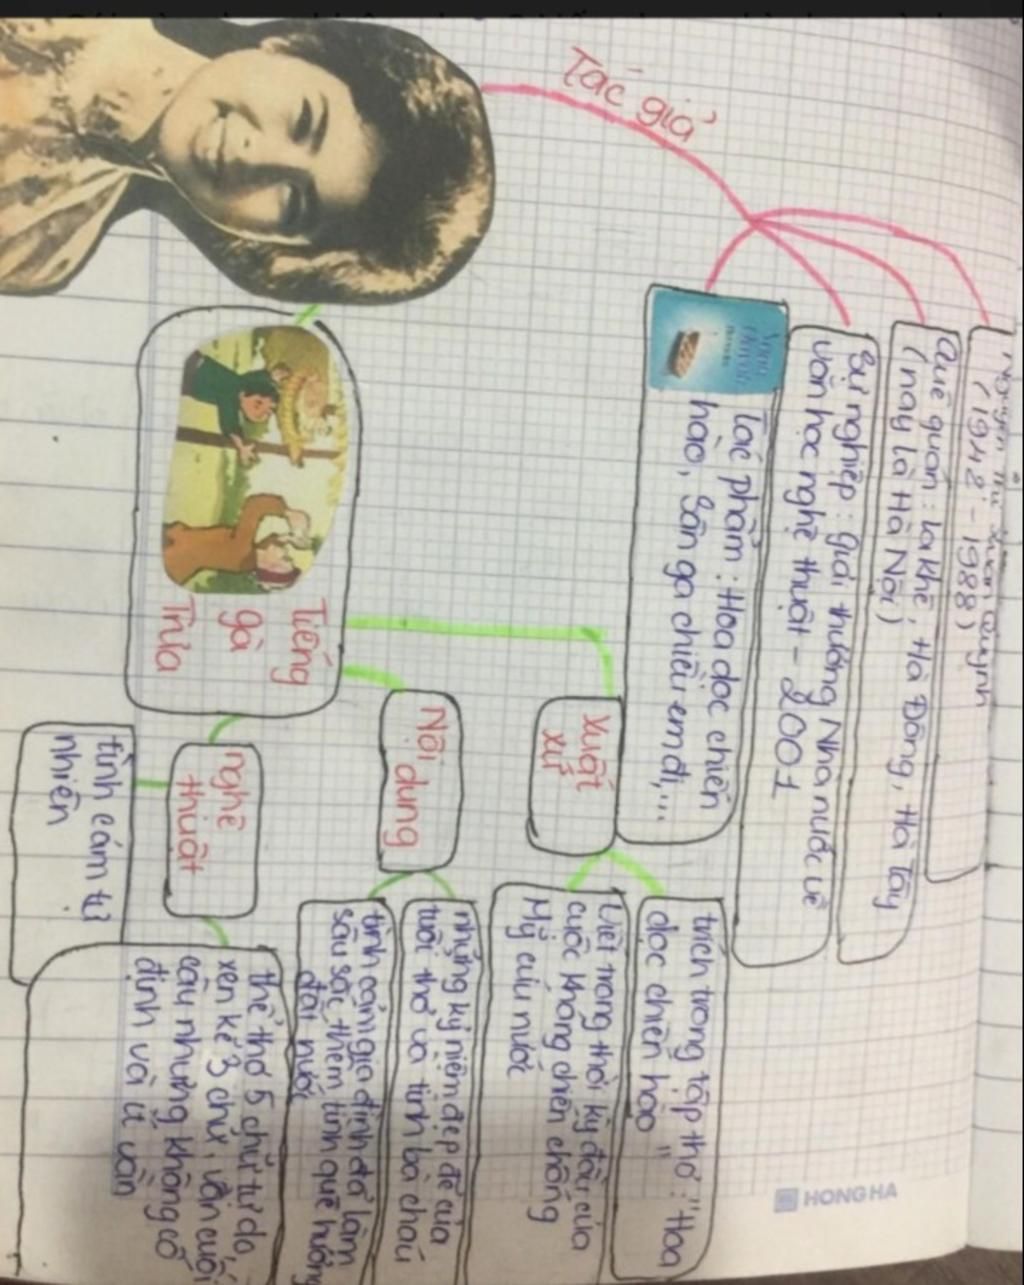 Tác giả
Nguyễn Thị Xuân Quỳnh
(1942 - 1988)
Quê quán: La Khê, Hà Đông, Hà Tây
(nay là Hà Nội)
Sự nghiệp: giải thưởng Nhà nước về
văn học nghệ thuật - 2001
Tác phẩm: Hoa dọc chiến
hào, Sân ga chiều em đi,...
Xuất
xứ
trích trong tập thơ: "Hoa
dọc chiến hào"
Viết trong thời kỳ đầu của
cuộc kháng chiến chống
Mỹ cứu nước
Tiếng
gà
Trưa
Nội dung
những kỷ niệm đẹp đẽ của
tuổi thơ và tình bà cháu
tình cảm gia đình đã làm
sâu sắc thêm tình quê hương
đất nước
nghệ
thuật
thể thơ 5 chữ tự do,
xen kẽ 3 chữ, vần cuối
câu nhưng không cố
định và ít vần
tình cảm tự
nhiên
HONG HA